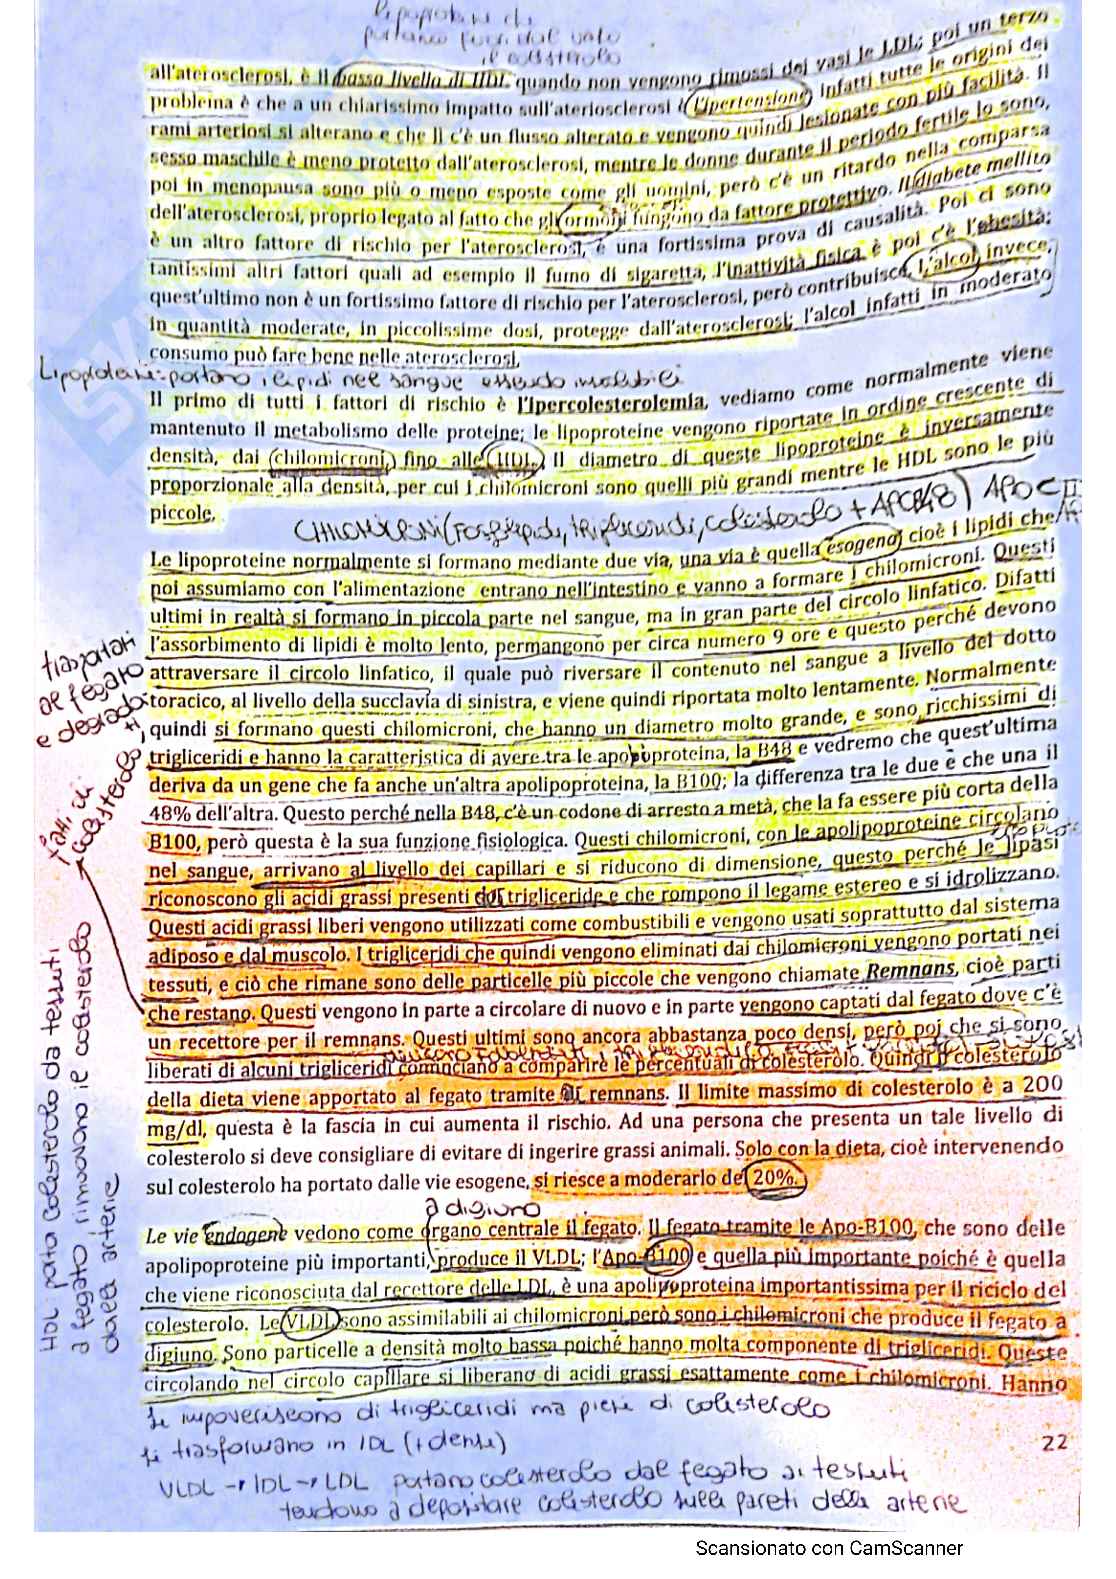 lipoproteine che
portano fuori dal vaso
il colesterolo
all'aterosclerosi, è il basso livello di HDL quando non vengono rimossi dei vasi le LDL; poi un terzo
problema è che a un chiarissimo impatto sull'ateriosclerosi è l'ipertensione infatti tutte le origini dei
rami arteriosi si alterano e che lì c'è un flusso alterato e vengono quindi lesionate con più facilità. Il
sesso maschile è meno protetto dall'aterosclerosi, mentre le donne durante il periodo fertile lo sono,
poi in menopausa sono più o meno esposte come gli uomini, però c'è un ritardo nella comparsa
dell'aterosclerosi, proprio legato al fatto che gli ormoni fungono da fattore protettivo. Il diabete mellito
è un altro fattore di rischio per l'aterosclerosi, è una fortissima prova di causalità. Poi ci sono
tantissimi altri fattori quali ad esempio il fumo di sigaretta, l'inattività fisica è poi c'è l'obesità;
quest'ultimo non è un fortissimo fattore di rischio per l'aterosclerosi, però contribuisce. L'alcol invece,
in quantità moderate, in piccolissime dosi, protegge dall'aterosclerosi; l'alcol infatti in moderato
consumo può fare bene nelle aterosclerosi.
Lipoproteine: portano i lipidi nel sangue essendo insolubili
Il primo di tutti i fattori di rischio è l'ipercolesterolemia, vediamo come normalmente viene
mantenuto il metabolismo delle proteine; le lipoproteine vengono riportate in ordine crescente di
densità, dai chilomicroni fino alle HDL. Il diametro di queste lipoproteine è inversamente
proporzionale alla densità, per cui i chilomicroni sono quelli più grandi mentre le HDL sono le più
piccole.
CHILOMICRONI (Fosfolipidi, trigliceridi, colesterolo + APOB48) APO C II
Le lipoproteine normalmente si formano mediante due via, una via è quella esogena, cioè i lipidi che
poi assumiamo con l'alimentazione entrano nell'intestino e vanno a formare i chilomicroni. Questi
ultimi in realtà si formano in piccola parte nel sangue, ma in gran parte del circolo linfatico. Difatti
l'assorbimento di lipidi è molto lento, permangono per circa numero 9 ore e questo perché devono
attraversare il circolo linfatico, il quale può riversare il contenuto nel sangue a livello del dotto
toracico, al livello della succlavia di sinistra, e viene quindi riportata molto lentamente. Normalmente
quindi si formano questi chilomicroni, che hanno un diametro molto grande, e sono ricchissimi di
trigliceridi e hanno la caratteristica di avere tra le apolipoproteina, la B48 e vedremo che quest'ultima
deriva da un gene che fa anche un'altra apolipoproteina, la B100; la differenza tra le due è che una il
48% dell'altra. Questo perché nella B48, c'è un codone di arresto a metà, che la fa essere più corta della
B100, però questa è la sua funzione fisiologica. Questi chilomicroni, con le apolipoproteine circolano
nel sangue, arrivano al livello dei capillari e si riducono di dimensione, questo perché le lipasi
riconoscono gli acidi grassi presenti dei trigliceride e che rompono il legame estereo e si idrolizzano.
Questi acidi grassi liberi vengono utilizzati come combustibili e vengono usati soprattutto dal sistema
adiposo e dal muscolo. I trigliceridi che quindi vengono eliminati dai chilomicroni vengono portati nei
tessuti, e ciò che rimane sono delle particelle più piccole che vengono chiamate Remnans, cioè parti
che restano. Questi vengono in parte a circolare di nuovo e in parte vengono captati dal fegato dove c'è
un recettore per il remnans. Questi ultimi sono ancora abbastanza poco densi, però poi che si sono
liberati di alcuni trigliceridi cominciano a comparire le percentuali di colesterolo. Quindi il colesterolo
della dieta viene apportato al fegato tramite i remnans. Il limite massimo di colesterolo è a 200
mg/dl, questa è la fascia in cui aumenta il rischio. Ad una persona che presenta un tale livello di
colesterolo si deve consigliare di evitare di ingerire grassi animali. Solo con la dieta, cioè intervenendo
sul colesterolo ha portato dalle vie esogene, si riesce a moderarlo del 20%.
trasportati
al fegato
e degradati
ricchi di
colesterolo
HDL porta colesterolo da tessuti
a fegato rimuovono il colesterolo
dalla arterie
a digiuno
Le vie endogene vedono come organo centrale il fegato. Il fegato tramite le Apo-B100, che sono delle
apolipoproteine più importanti, produce il VLDL; l'Apo-B100 e quella più importante poiché è quella
che viene riconosciuta dal recettore delle LDL, è una apolipoproteina importantissima per il riciclo del
colesterolo. Le VLDL sono assimilabili ai chilomicroni però sono i chilomicroni che produce il fegato a
digiuno. Sono particelle a densità molto bassa poiché hanno molta componente di trigliceridi. Queste
circolando nel circolo capillare si liberano di acidi grassi esattamente come i chilomicroni. Hanno
Si impoveriscono di trigliceridi ma piene di colesterolo
si trasformano in IDL (+ dense)
22
VLDL → IDL → LDL portano colesterolo dal fegato ai tessuti
tendono a depositare colesterolo sulle pareti delle arterie
Scansionato con CamScanner